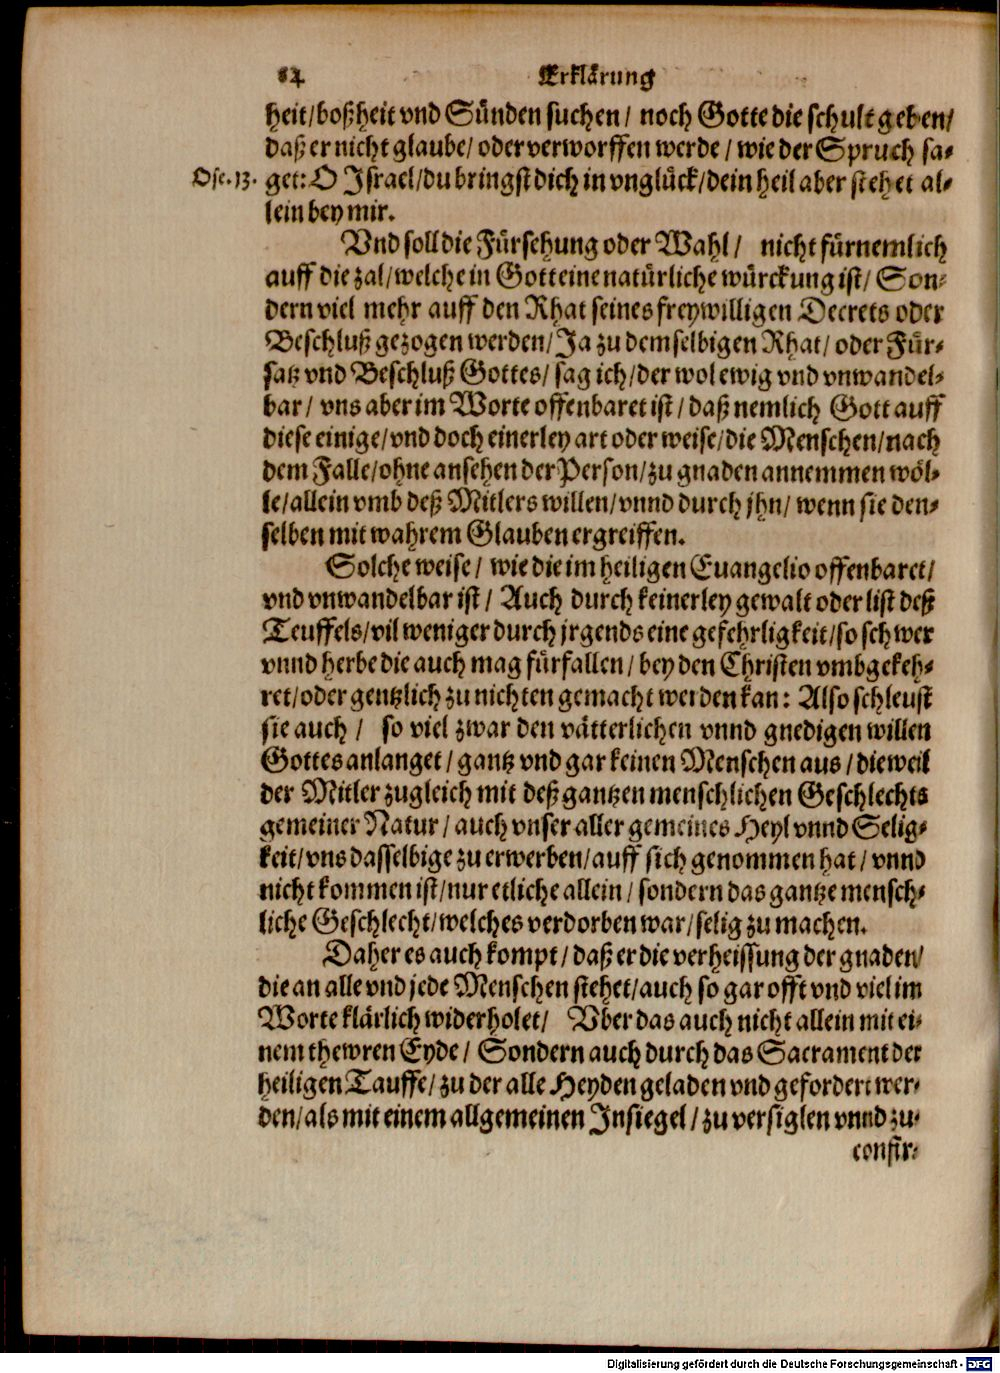 84 Erklärung
heit/boßheit vnd Sünden suchen/ noch Gotte die schult geben/
daß er nicht glaube/ oder verworffen werde/ wie der Spruch sa-
Ose. 13. get: O Israel/du bringst dich in vnglück/dein heil aber stehet al-
lein bey mir.
Vnd soll die Fürsehung oder Wahl/ nicht fürnemlich
auff die zal/welche in Gott eine natürliche würckung ist/ Son-
dern viel mehr auff den Rhat seines freywilligen Decrets oder
Beschluß gezogen werden/Ja zu demselbigen Rhat/ oder Für-
satz vnd Beschluß Gottes/ sag ich/der wol ewig vnd vnwandel-
bar/ vns aber im Worte offenbaret ist/ daß nemlich Gott auff
diese einige/vnd doch einerley art oder weise/die Menschen/nach
dem Falle/ohne ansehen der Person/zu gnaden annemmen wöl-
le/allein vmb deß Mitlers willen/vnnd durch jhn/ wenn sie den-
selben mit wahrem Glauben ergreiffen.
Solche weise/ wie die im heiligen Euangelio offenbaret/
vnd vnwandelbar ist/ Auch durch keinerley gewalt oder list deß
Teuffels/vil weniger durch jrgends eine gefehrligkeit/so schwer
vnnd herbe die auch mag fürfallen/ bey den Christen vmbgekeh-
ret/oder gentzlich zu nichten gemacht werden kan: Also schleust
sie auch/ so viel zwar den vätterlichen vnnd gnedigen willen
Gottes anlanget/ gantz vnd gar keinen Menschen aus/dieweil
der Mitler zugleich mit deß gantzen menschlichen Geschlechts
gemeiner Natur/ auch vnser aller gemeines Heyl vnnd Selig-
keit/vns dasselbige zu erwerben/auff sich genommen hat/ vnnd
nicht kommen ist/nur etliche allein/ sondern das gantze mensch-
liche Geschlecht/welches verdorben war/selig zu machen.
Daher es auch kompt/ daß er die verheissung der gnaden/
die an alle vnd jede Menschen stehet/auch so gar offt vnd viel im
Worte klärlich widerholet/ Vber das auch nicht allein mit ei-
nem thewren Eyde/ Sondern auch durch das Sacrament der
heiligen Tauffe/ zu der alle Heyden geladen vnd gefordert wer-
den/als mit einem allgemeinen Insiegel/ zu versiglen vnnd zu-
confir-
Digitalisierung gefördert durch die Deutsche Forschungsgemeinschaft - DFG